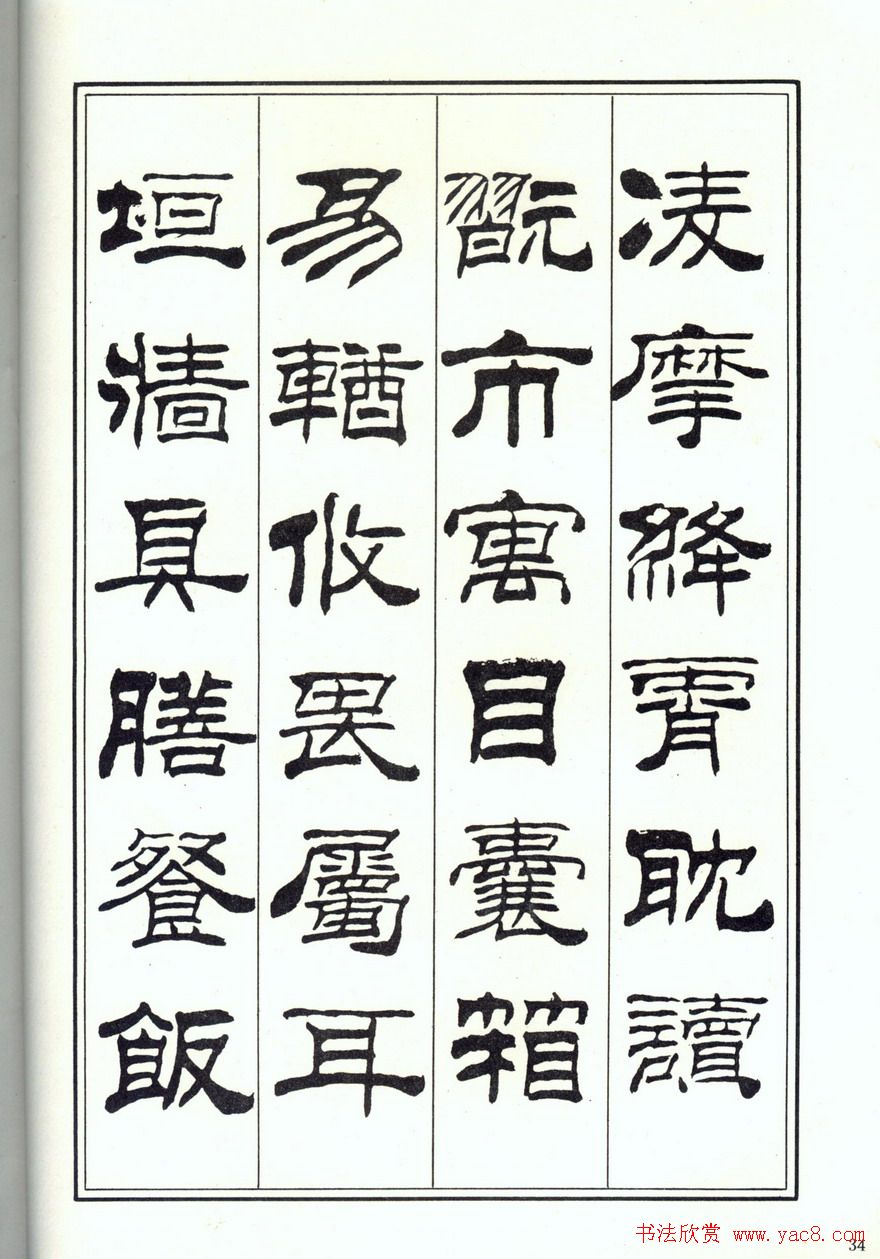 凌摩絳霄耽讀
翫市寓目囊箱
易輶攸畏屬耳
垣牆具膳餐飯
书法欣赏 www.yac8.com
34